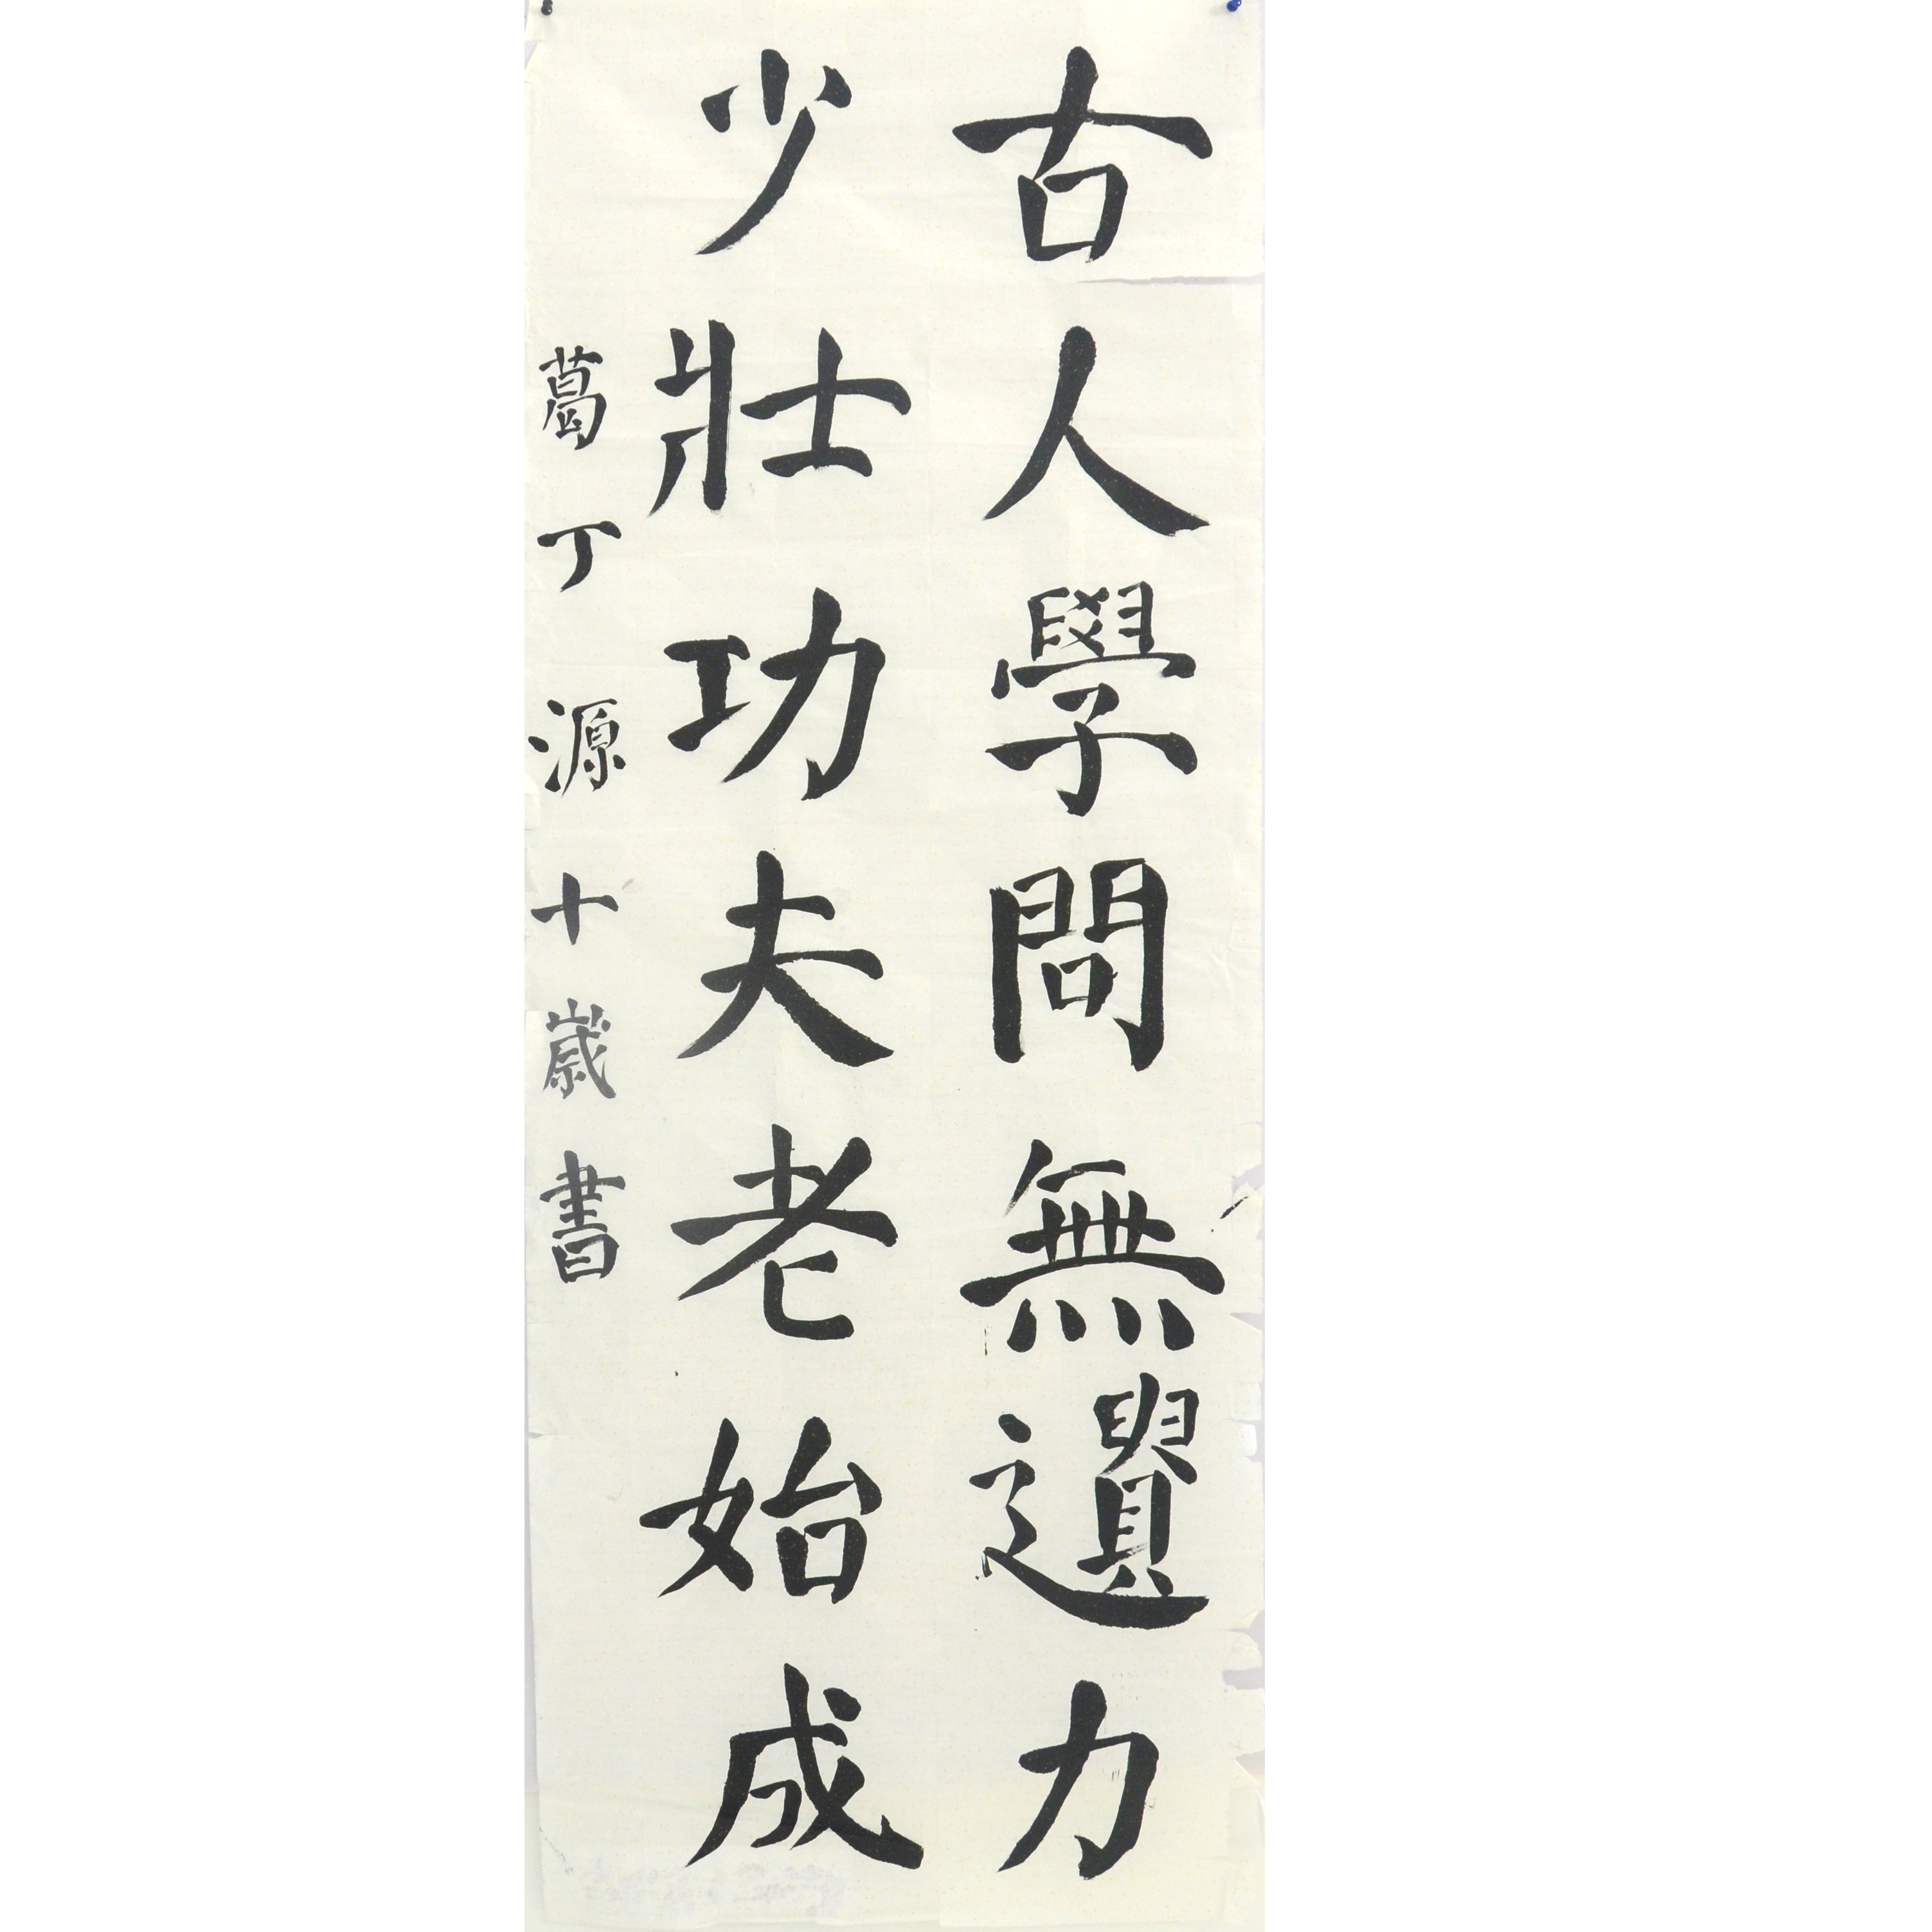 古人學問無遺力
少壯功夫老始成
葛丁源十歲書